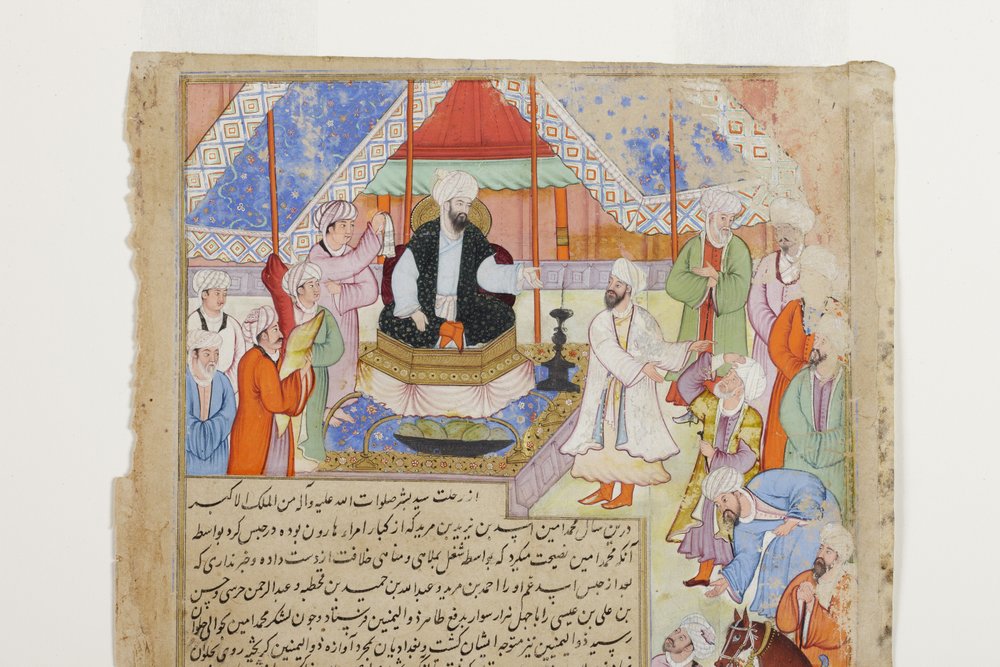 از رحلت سید بشر صلوات الله علیه وآله من الملک الاکبر
درین سال محمد امین اسد بن یزید بن مزید که از کبار امراء هارون بوده در حبس کرد بواسطه
آنکه محمد امین نصیحت میکرد که بواسطه شغل بملاهی و مناهی خلافت از دست داده و خبر نداری که
بعد از حبس اسد عم او را احمد بن مزید و عبدالله بن حمید بن قحطبه و عبدالرحمن حرسی و حسین
بن علی بن عیسی را با چهل هزار سوار بدفع طاهر ذوالیمینین فرستاد و چون لشکر محمد امین بحوالی حلوان
رسید ذوالیمینین نیز متوجه ایشان گشت و بغدادیان بمجرد آوازه ذوالیمینین گریخته روی بحلوان